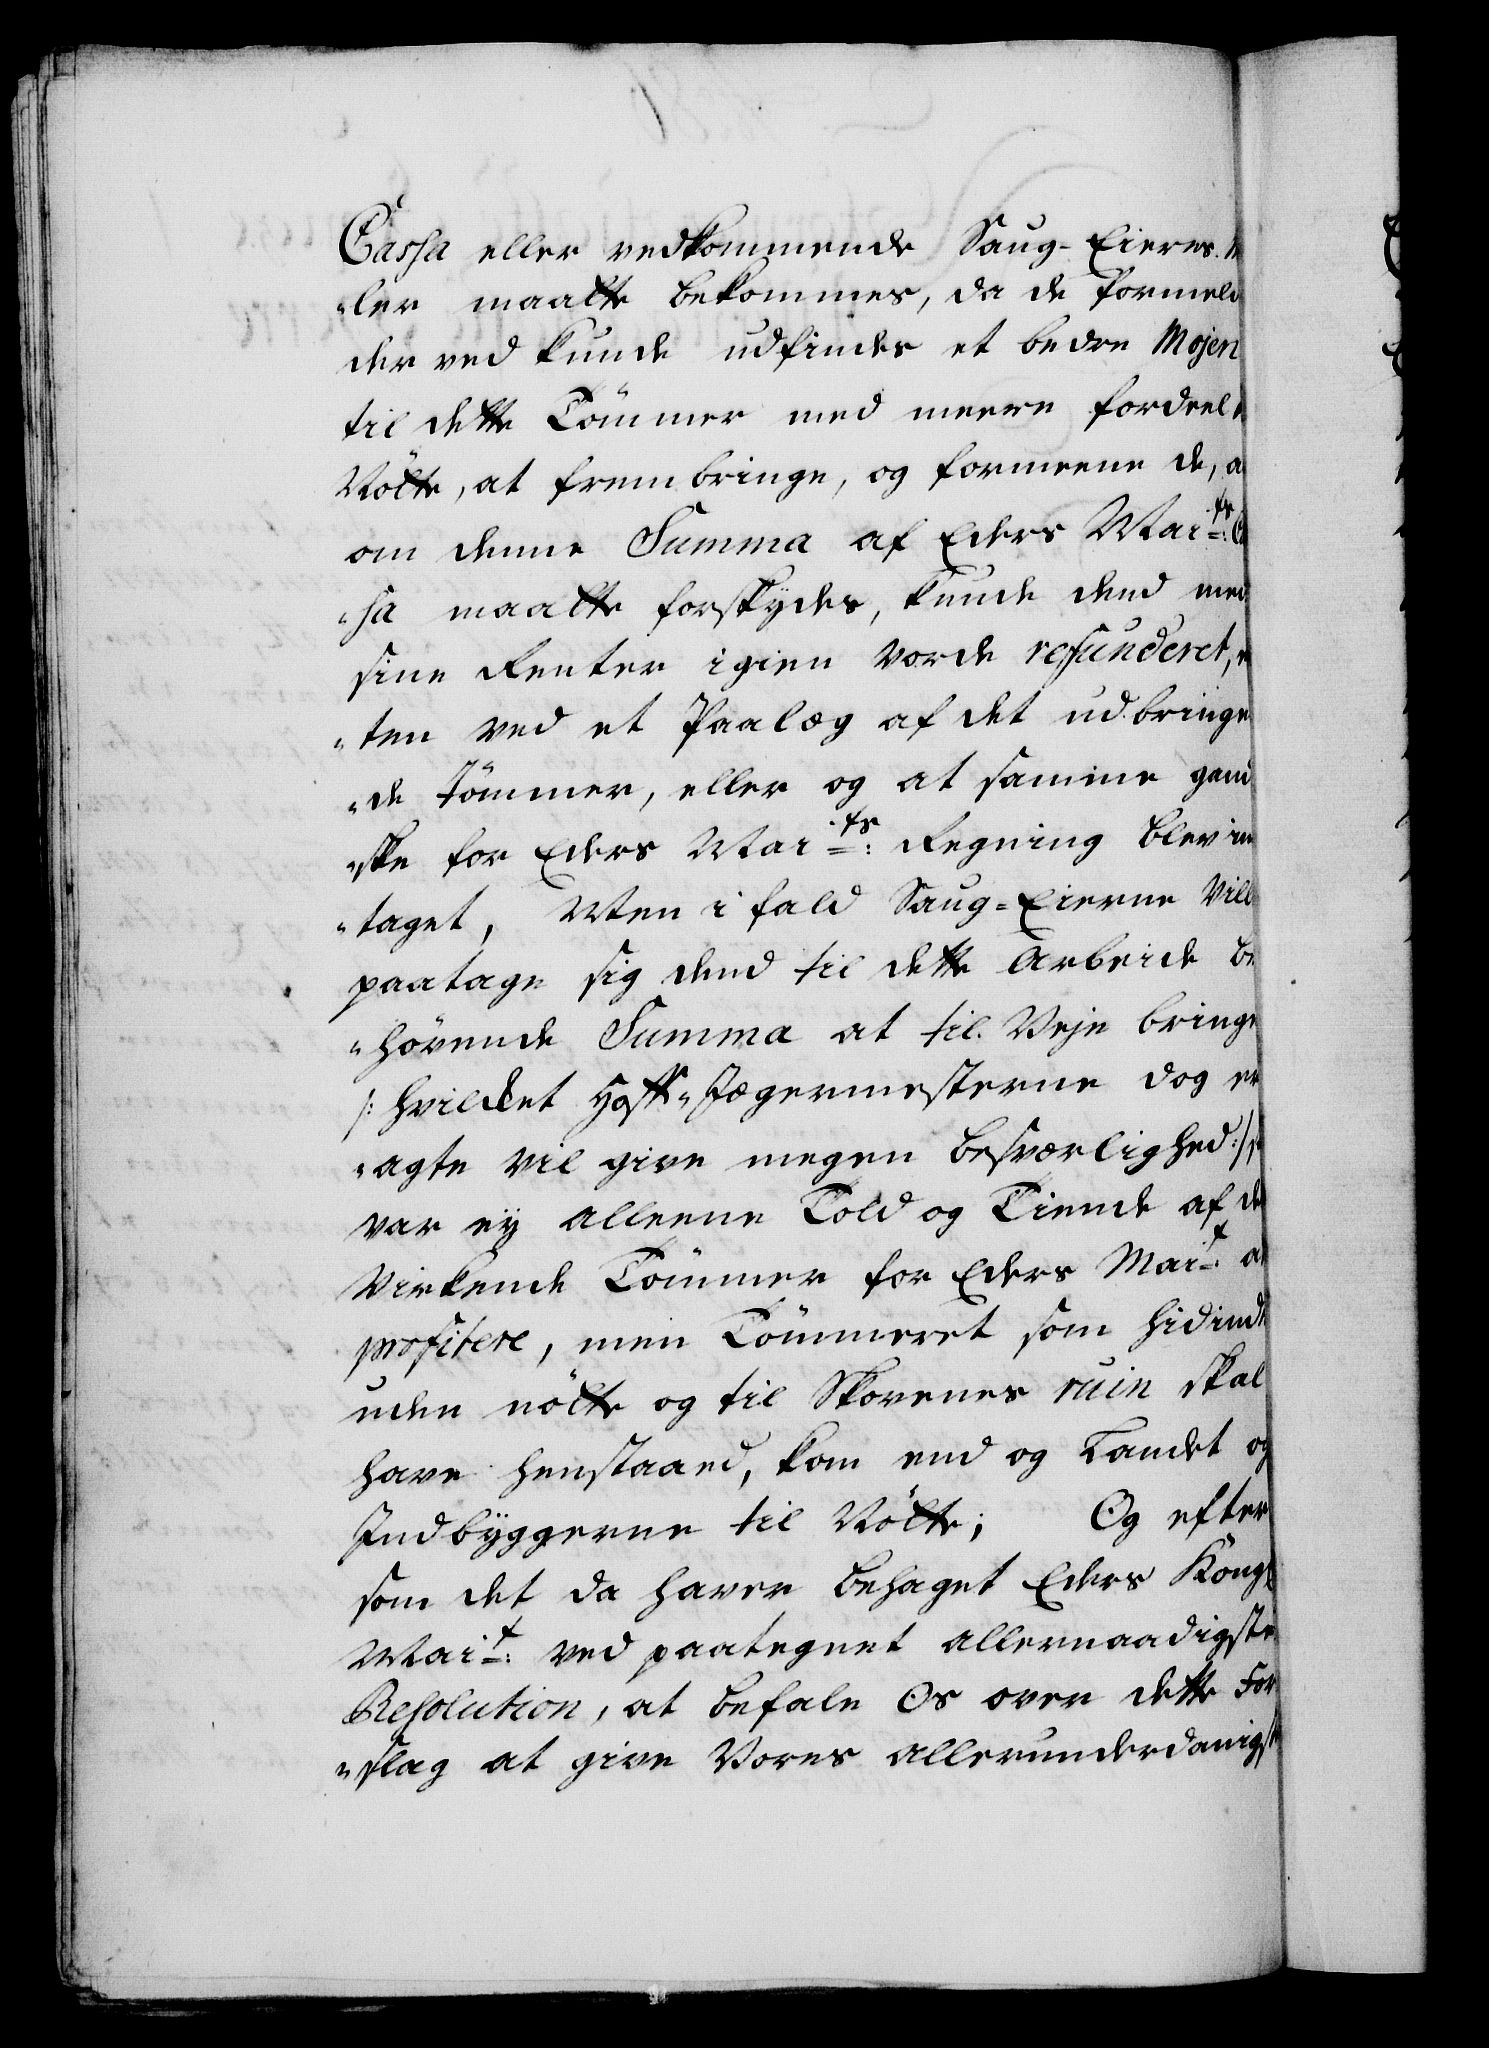 Cassa eller vedkommende Saug-Eieres
"ler maatte bekommes, da de formeld
der ved kunde udfindes et bedre Mojen
til dette Tömmer med meere fordeel
Nötte, at frembringe, og formeene de, a
om denne Summa af Eders Mai:ts Ca
"ssa maatte forskydes, kunde dend med
sine Renter igien vorde refunderet,
"ten ved et Paalæg af det udbringe
"de Tömmer, eller og at samme gand
"ske for Eders Mai:ts Regning blev in
"taget, Men i fald Saug-Eierne Vill
paatage sig dend til dette Arbeide be
"hörende Summa at til Veje bringe
/: hvilcket Hoff-Jægermesterne dog er
"agte vil give megen besværlighed :/
var ey alleene Told og Tiende af de
Virkende Tömmer for Eders Mai:t at
profitere, men Tömmeret som hidindt
uden nötte og til Skovenes ruin skal
have henstaaed, kom end og Landet og
Indbyggerne til Nötte; Og efter
som det da haver behaget Eders Kongl
Mai:t ved paategnet allernaadigste
Resolution, at befale Os over dette For
"slag at give Vores allerunderdanigst